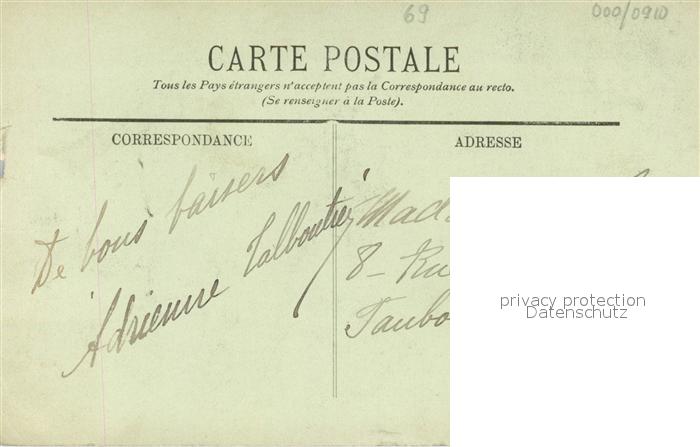 69
000/0910
CARTE POSTALE
Tous les Pays étrangers n'acceptent pas la Correspondance au recto.
(Se renseigner à la Poste).
CORRESPONDANCE
ADRESSE
De bons baisers
Adrienne
Mad
8 - Ru
Faubo
privacy protection
Datenschutz